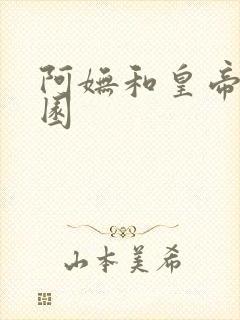 阿嫵和皇帝
園
山本美希